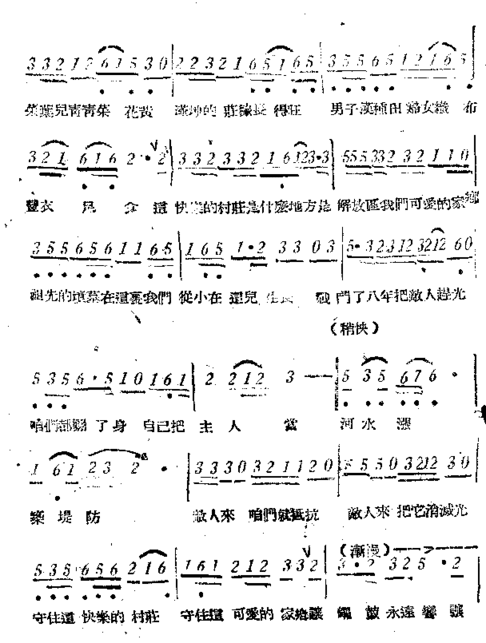 3 3 2 1 2 6 1 5 3 0 2 2 3 2 1 6 5 1 6 5 3 5 5 6 5 1 2 1 6 5
菜葉兒青青菜 花黃 滿坤的 莊稼長 得旺 男子漢種田 婦女織 布
3 2 1 6 1 6 2 · 2 3 3 2 3 3 2 1 6 1 2 3 · 3 5 5 5 3 3 2 3 2 1 1 0
豐衣 足 食 這 快樂的村莊是什麼地方是 解放區我們可愛的家鄉
3 5 5 5 6 5 6 1 1 6 · 5 1 6 5 1 · 2 3 3 0 3 5 · 3 2 3 1 2 3 2 1 2 6 0
祖先的墳墓在這裏我們 從小在 這兒 生長 戰 鬥了八年把敵人趕光
(稍快)
5 3 5 6 · 5 1 0 1 6 1 2 2 1 2 3 — 5 3 5 6 7 6 ·
咱們都翻 了身 自己把 主 人 當 河 水 漲
1 6 1 2 3 2 · 3 3 3 0 3 2 1 1 2 0 5 5 5 0 3 2 1 2 3 0
築 堤 防 敵人來 咱們就抵抗 敵人來 把它消滅光
(漸慢)
5 3 5 6 5 6 2 1 6 1 6 1 2 1 2 3 3 2 3 · 2 3 2 5 · 2
守住這 快樂的 村莊 守住這 可愛的 家鄉讓 鑼 鼓 永遠 響 強